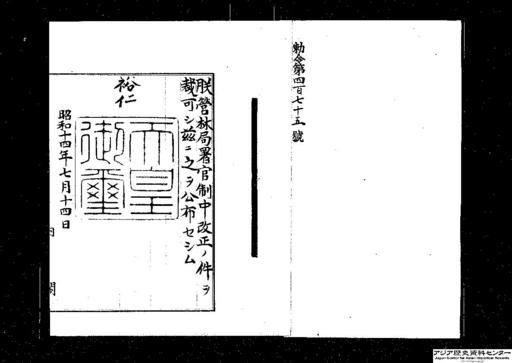 勅令第四百七十五號
朕營林局署官制中改正ノ件ヲ
裁可シ茲ニ之ヲ公布セシム
裕仁
天皇
御璽
昭和十四年七月十四日
内閣
アジア歴史資料センター
Japan Center for Asian Historical Records